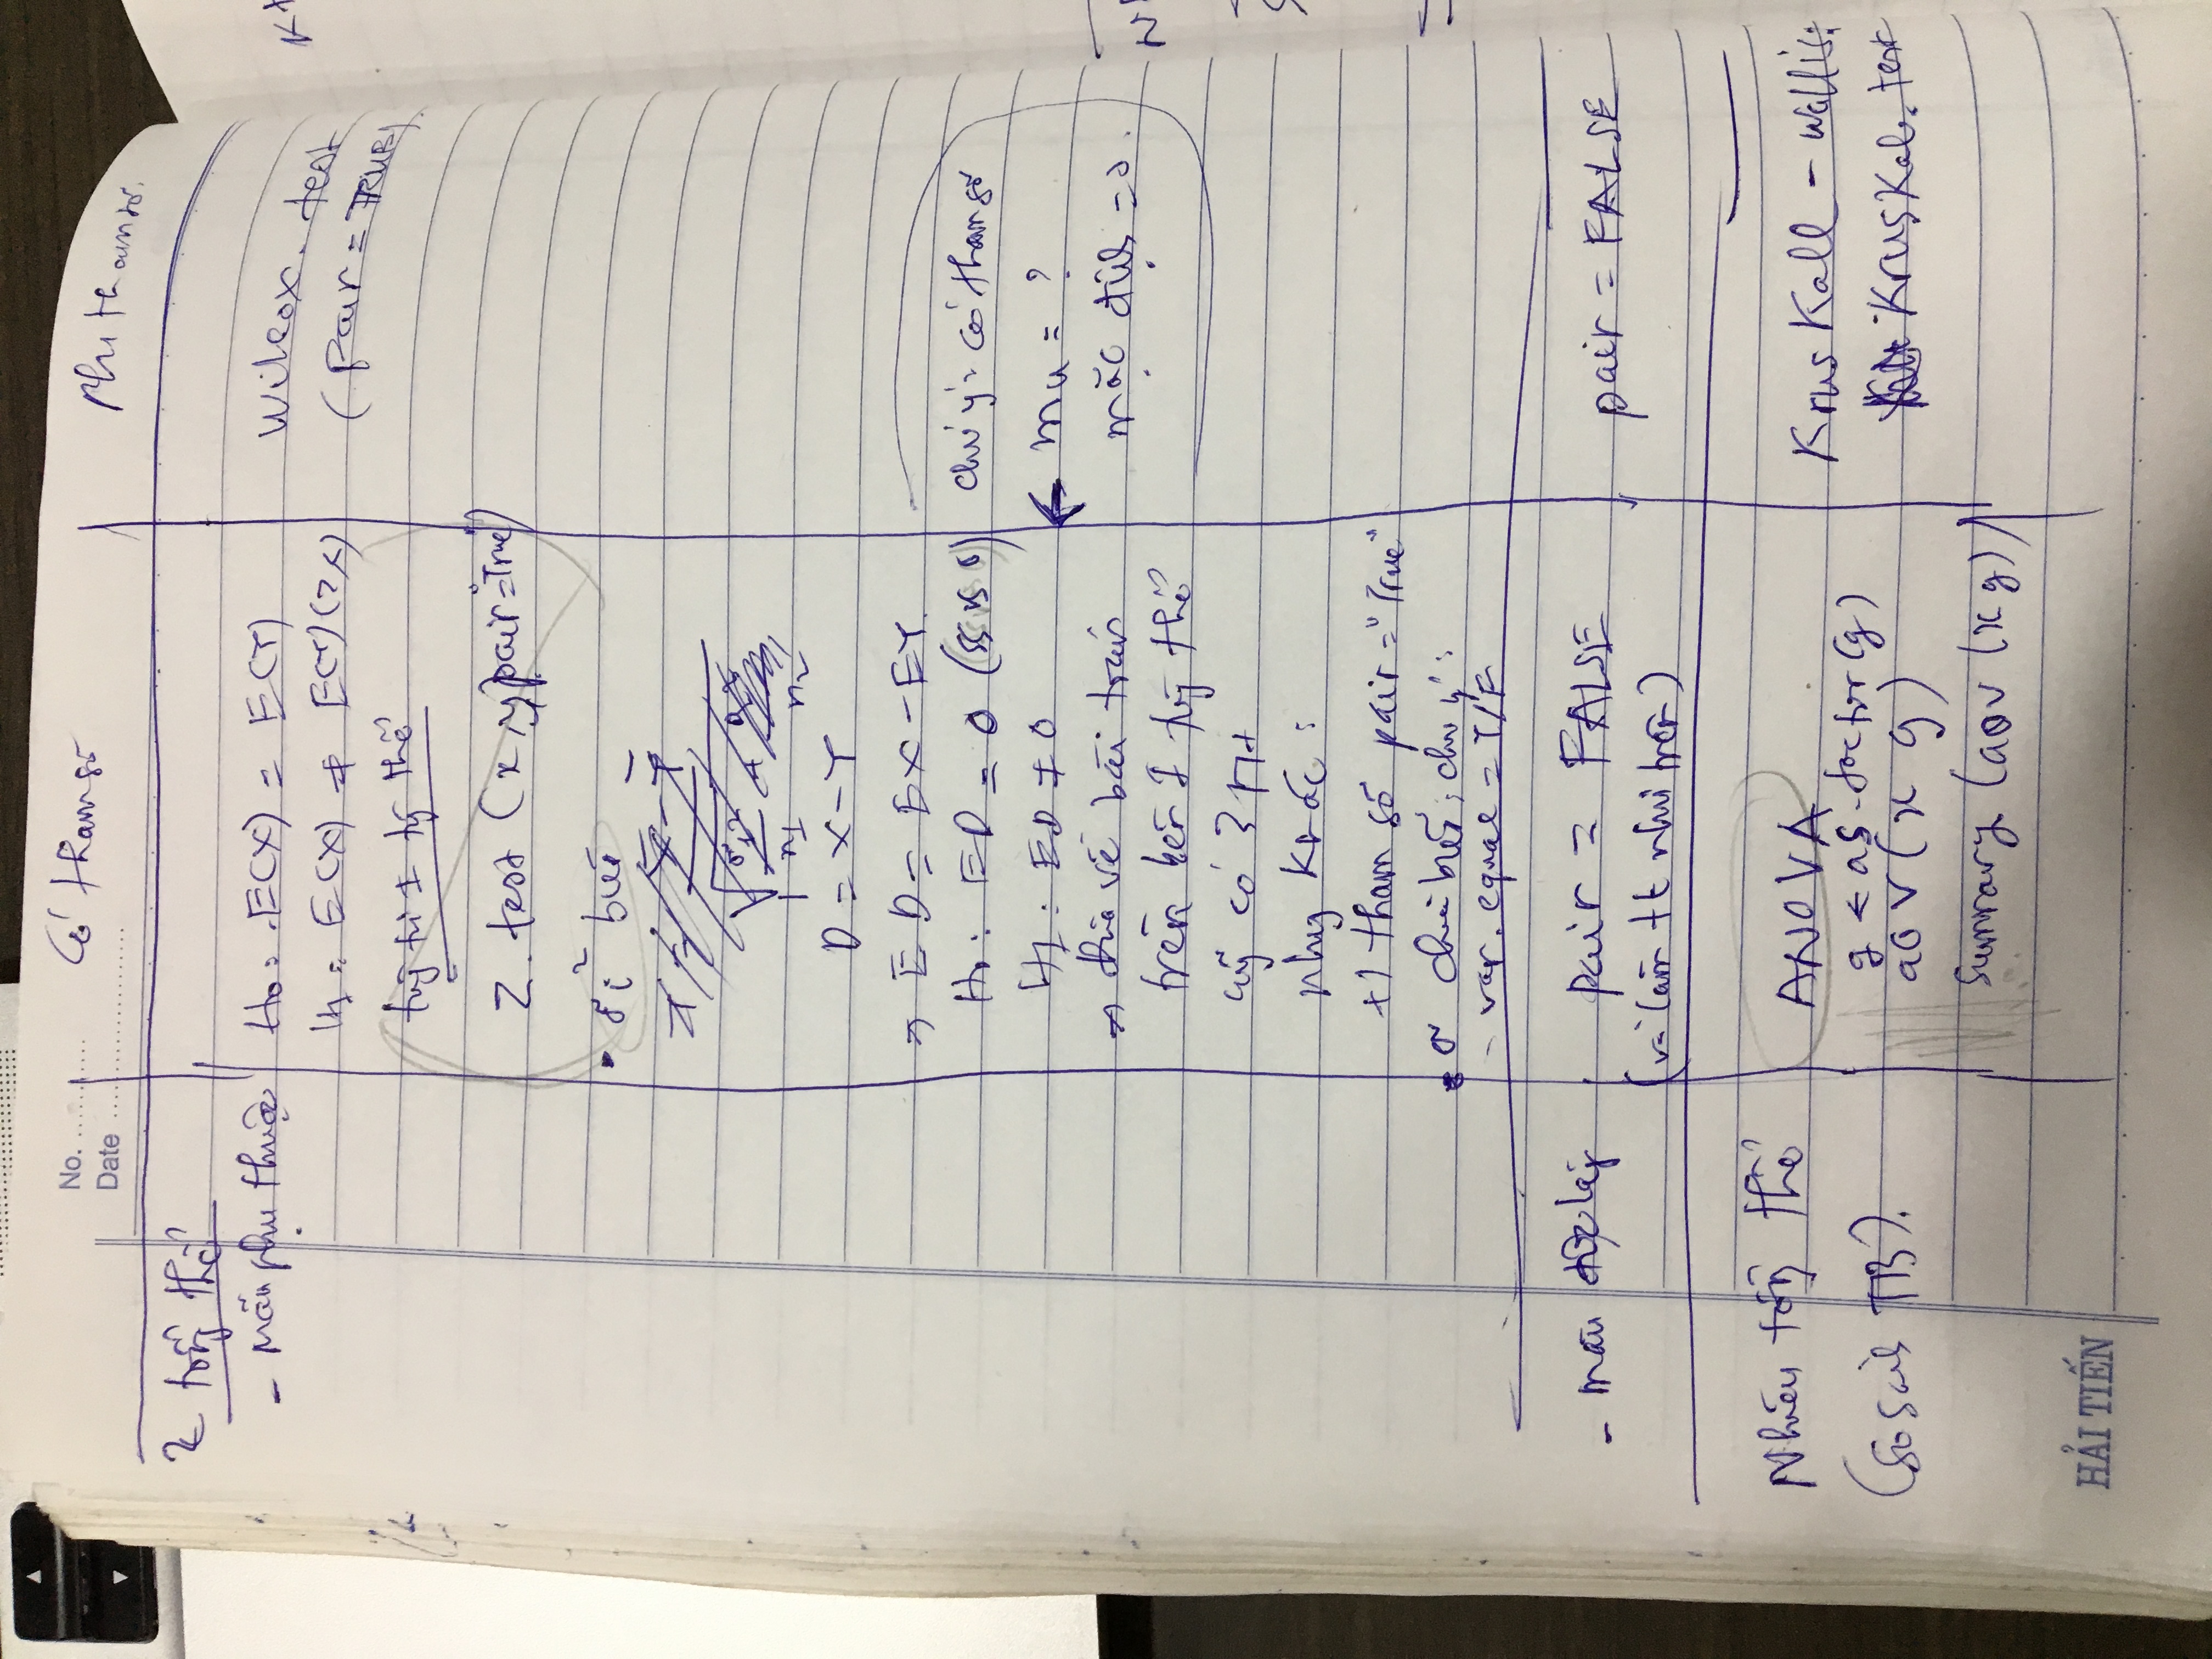 No. ............
Date .....................
Có tham số
Phi tham số.
2 tổng thể
- Mẫu phụ thuộc
H0: E(X) = E(Y)
H1: E(X) ≠ E(Y) (>,<)
tg tự 1 tg thể
Z. test (x, y, pair="True")
Wilcox. test
(pair = TRUE)
• σi² biết
n1 n2
D = X - Y
→ ED = EX - EY.
H0: ED = 0 (ss vs 0)
H1: ED ≠ 0
→ đưa về bài toán
trên kđ 1 tg thể
cũg có 3
nhưg khác:
+1 tham số pair="True"
• σ chưa biết, chú ý:
- var. equal = T/F
chú ý: có tham số
← mu = ?
mặc định = 0.
- mẫu độc lập
pair = FALSE
(và làm tt như trên)
pair = FALSE
Nhiều tổng thể
(so sánh TB).
ANOVA
g < as.factor(g)
aov (x g)
Summary (aov (x g))
KrusKall - Wallis:
KrusKal. test
HẢI TIẾN